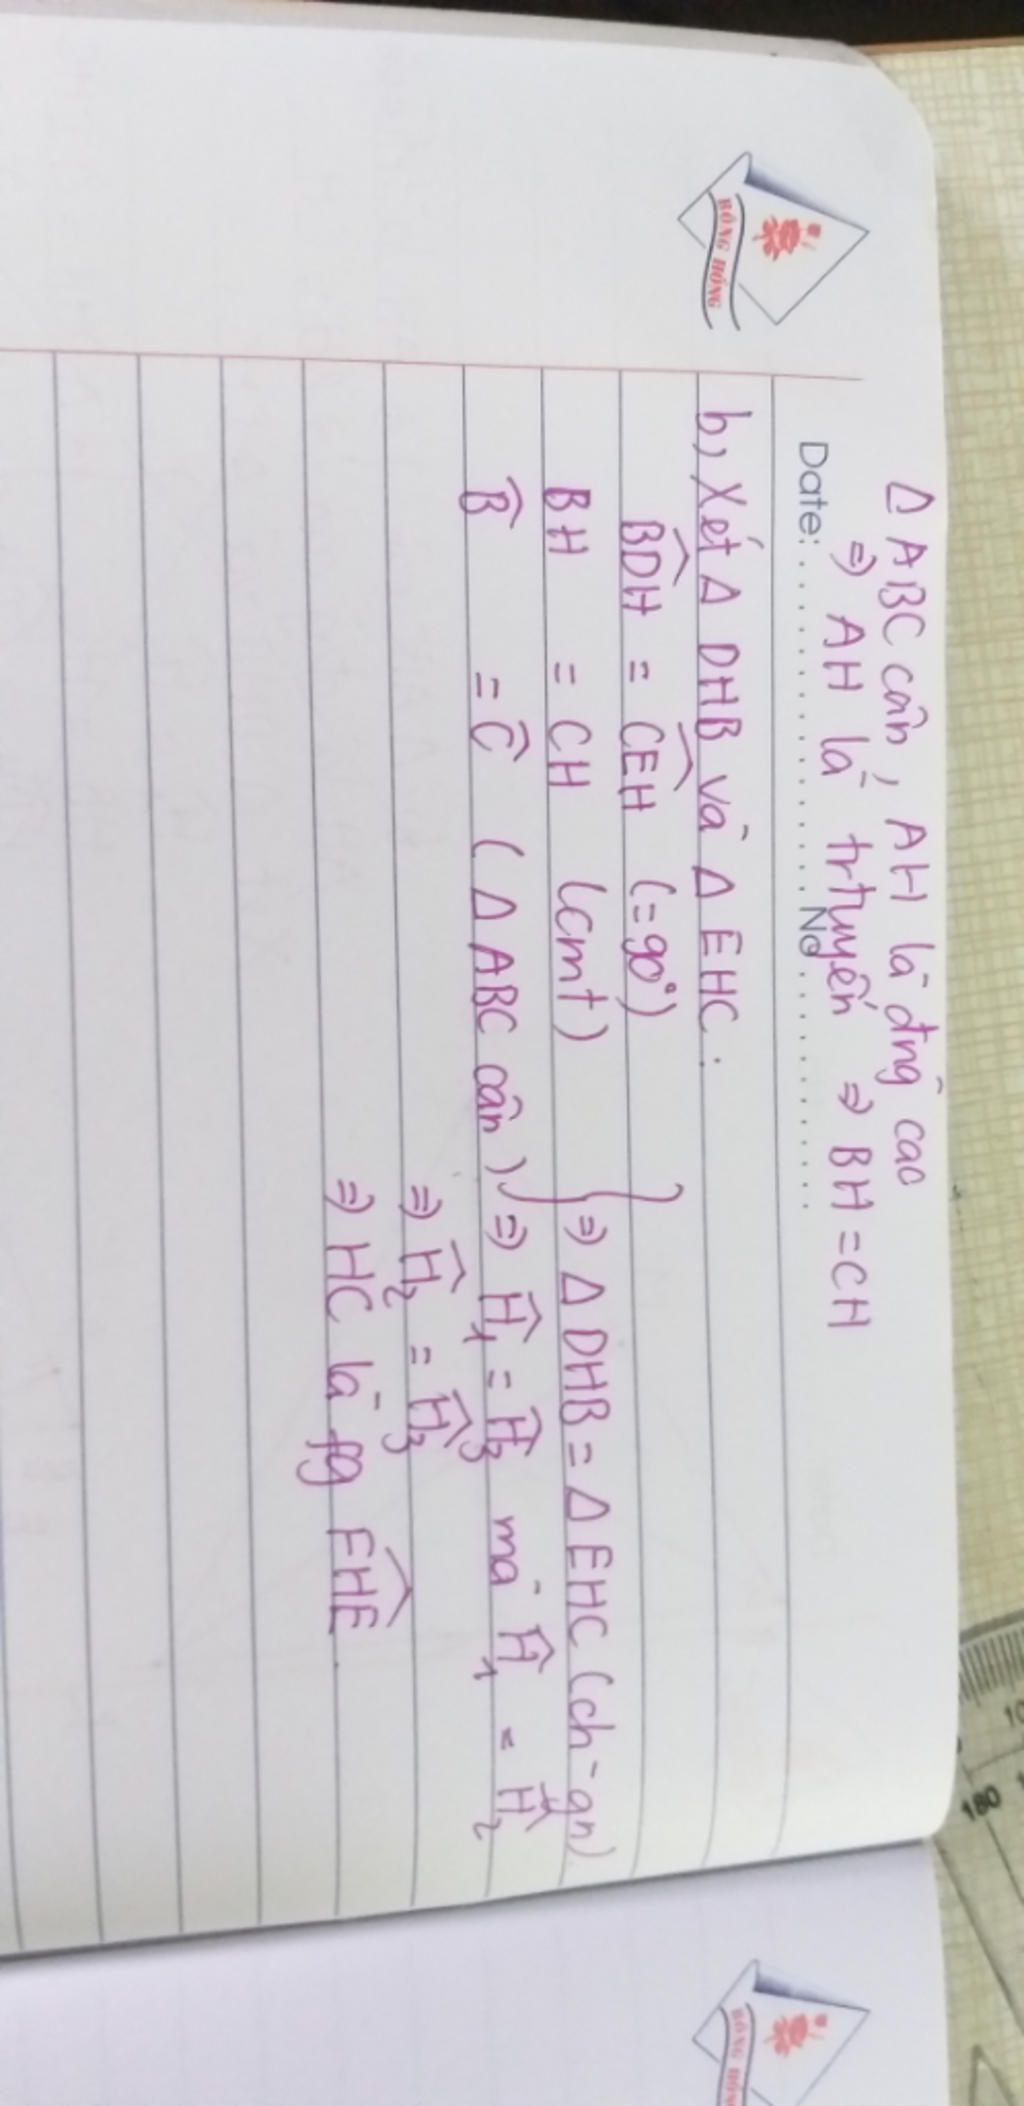 Δ ABC cân, AH là đng cao
⇒ AH là trtuyến ⇒ BH = CH
Date: .................... No ....................
BÔNG HỒNG
b) Xét Δ DHB và Δ EHC :
BDH^ = CEH^ (= 90°)
BH = CH (cmt)
B^ = C^ (Δ ABC cân)
⇒ Δ DHB = Δ EHC (ch-gn)
⇒ H^₁ = H^₃ mà H^₁ = H^₂
⇒ H^₂ = H^₃
⇒ HC là fg FHE^.
10
180
BÔNG HỒNG